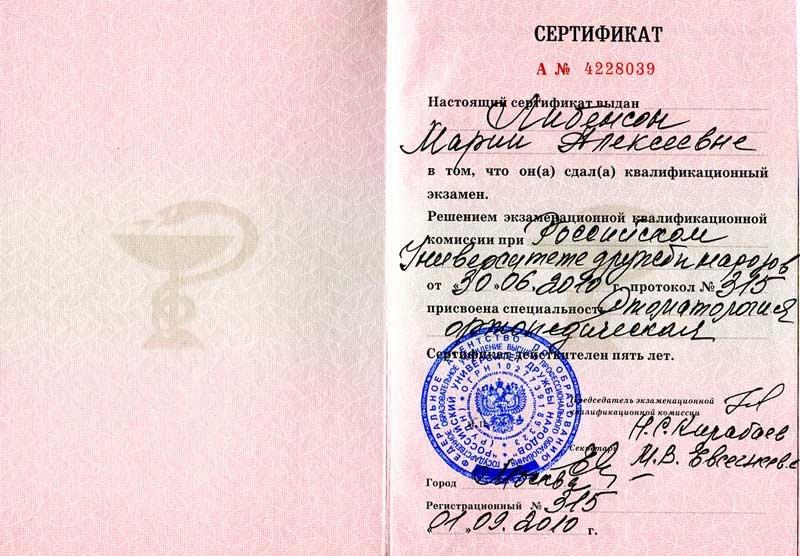 СЕРТИФИКАТ
А № 4228039
Настоящий сертификат выдан
Либенсон
Марии Алексеевне
в том, что он(а) сдал(а) квалификационный
экзамен.
Решением экзаменационной квалификационной
комиссии при Российском
Университете дружбы народов
от «30» 06.2010 г. протокол № 315
присвоена специальность Стоматология
ортопедическая
Сертификат действителен пять лет.
ФЕДЕРАЛЬНОЕ АГЕНТСТВО ПО ОБРАЗОВАНИЮ
РОССИЙСКИЙ УНИВЕРСИТЕТ ДРУЖБЫ НАРОДОВ
Председатель экзаменационной
квалификационной комиссии
Н.С. Кирабаев
Секретарь
М.В.
Город Москва
Регистрационный № 315
«01» 09.2010 г.